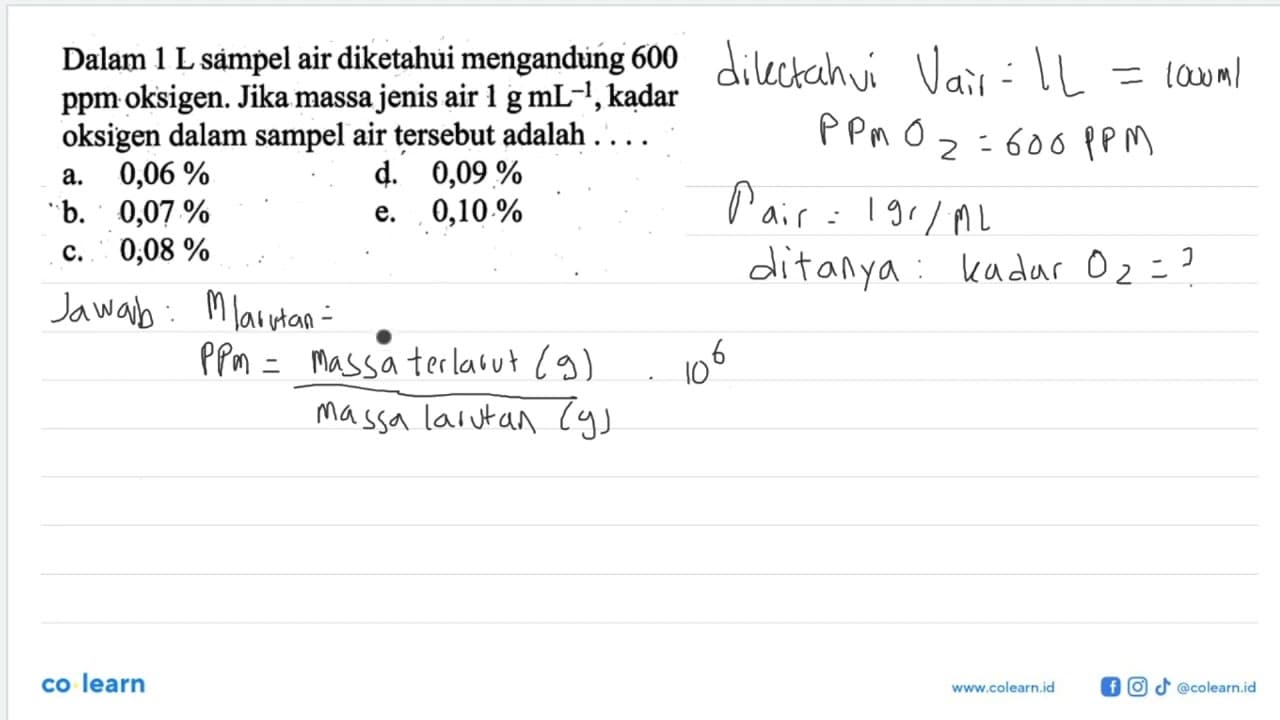 Dalam 1 L sampel air diketahui mengandung 600
ppm oksigen. Jika massa jenis air 1 g mL⁻¹, kadar
oksigen dalam sampel air tersebut adalah . . . .
a. 0,06 % d. 0,09 %
b. 0,07 % e. 0,10 %
c. 0,08 %
diketahui Vair = 1L = 1000ml
PPm O2 = 600 PPM
ρair = 1 gr/mL
ditanya : kadar O2 = ?
Jawab : Mlarutan =
PPm = massa terlarut (g) . 10⁶
massa larutan (g)
co learn
www.colearn.id @colearn.id